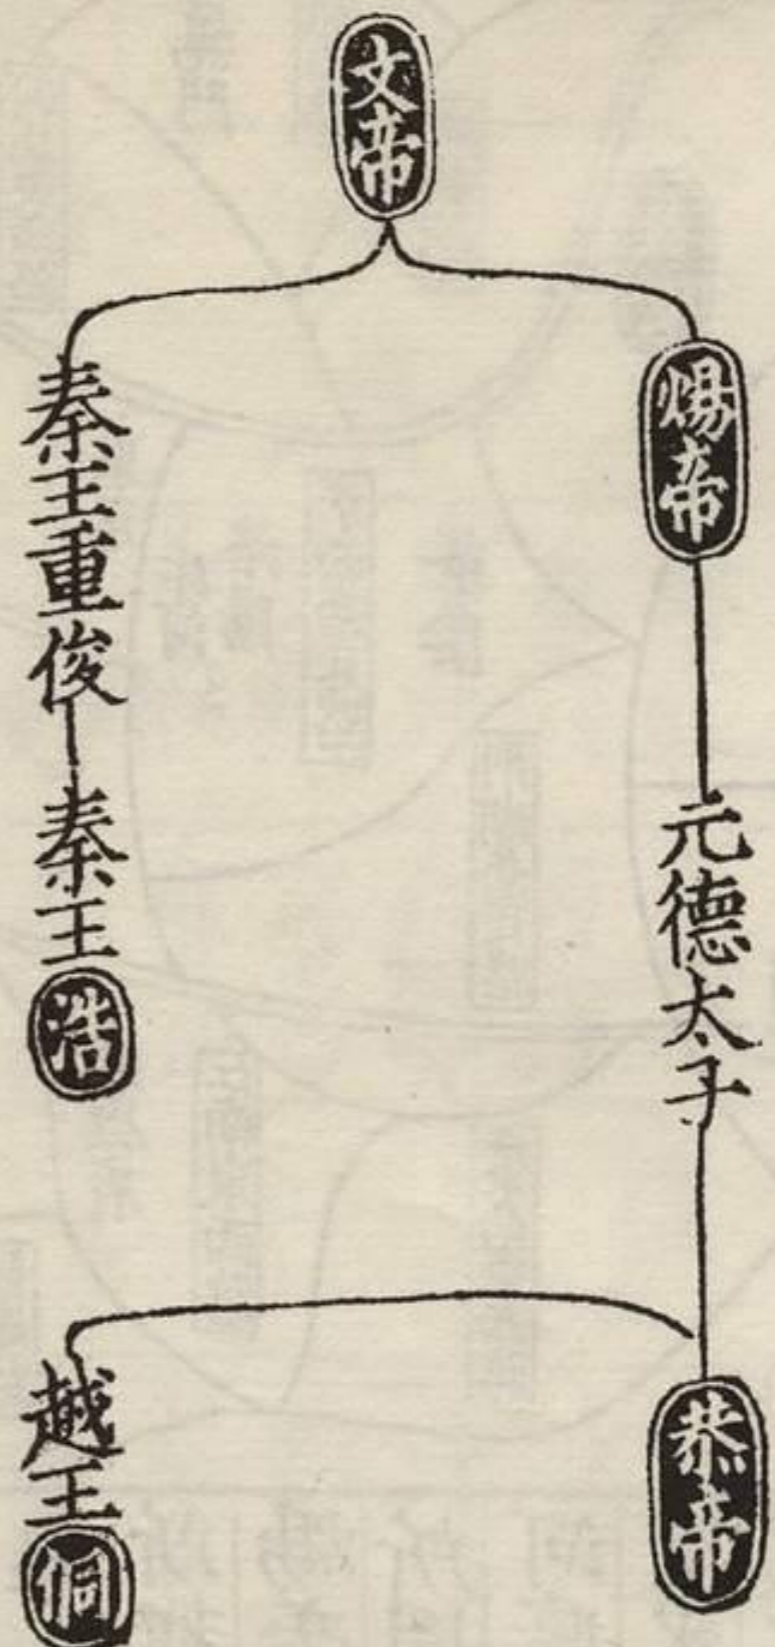 文帝
煬帝
元德太子
恭帝
秦王重俊
秦王浩
越王侗